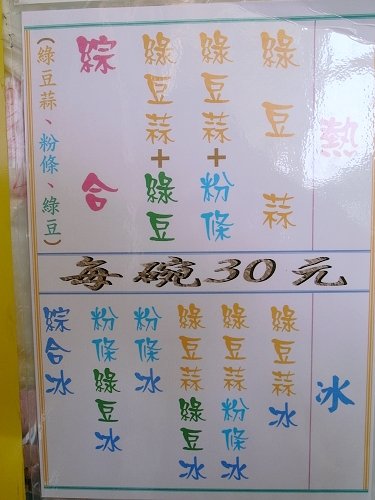 熱
綠豆蒜
綠豆蒜+粉條
綠豆蒜+綠豆
綜合
(綠豆蒜、粉條、綠豆)
每碗30元
冰
綠豆蒜冰
綠豆蒜粉條冰
綠豆蒜綠豆冰
粉條冰
粉條綠豆冰
綜合冰